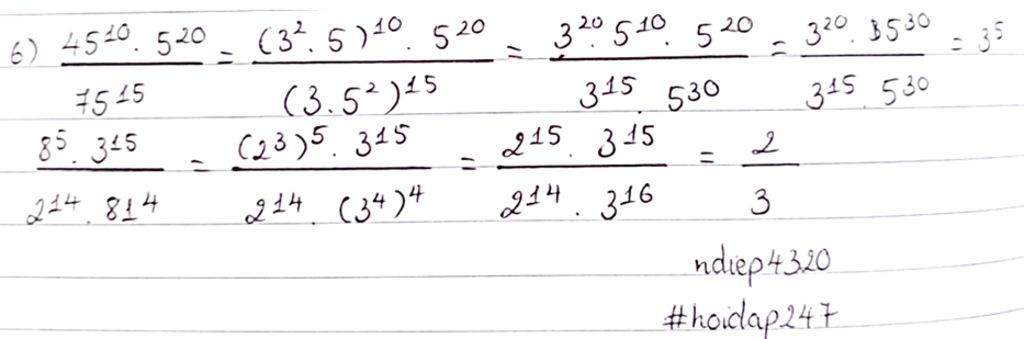 6) 45^10 . 5^20 / 75^15 = (3^2 . 5)^10 . 5^20 / (3 . 5^2)^15 = 3^20 . 5^10 . 5^20 / 3^15 . 5^30 = 3^20 . 5^30 / 3^15 . 5^30 = 3^5
8^5 . 3^15 / 2^14 . 81^4 = (2^3)^5 . 3^15 / 2^14 . (3^4)^4 = 2^15 . 3^15 / 2^14 . 3^16 = 2 / 3
ndiep4320
#hoidap247